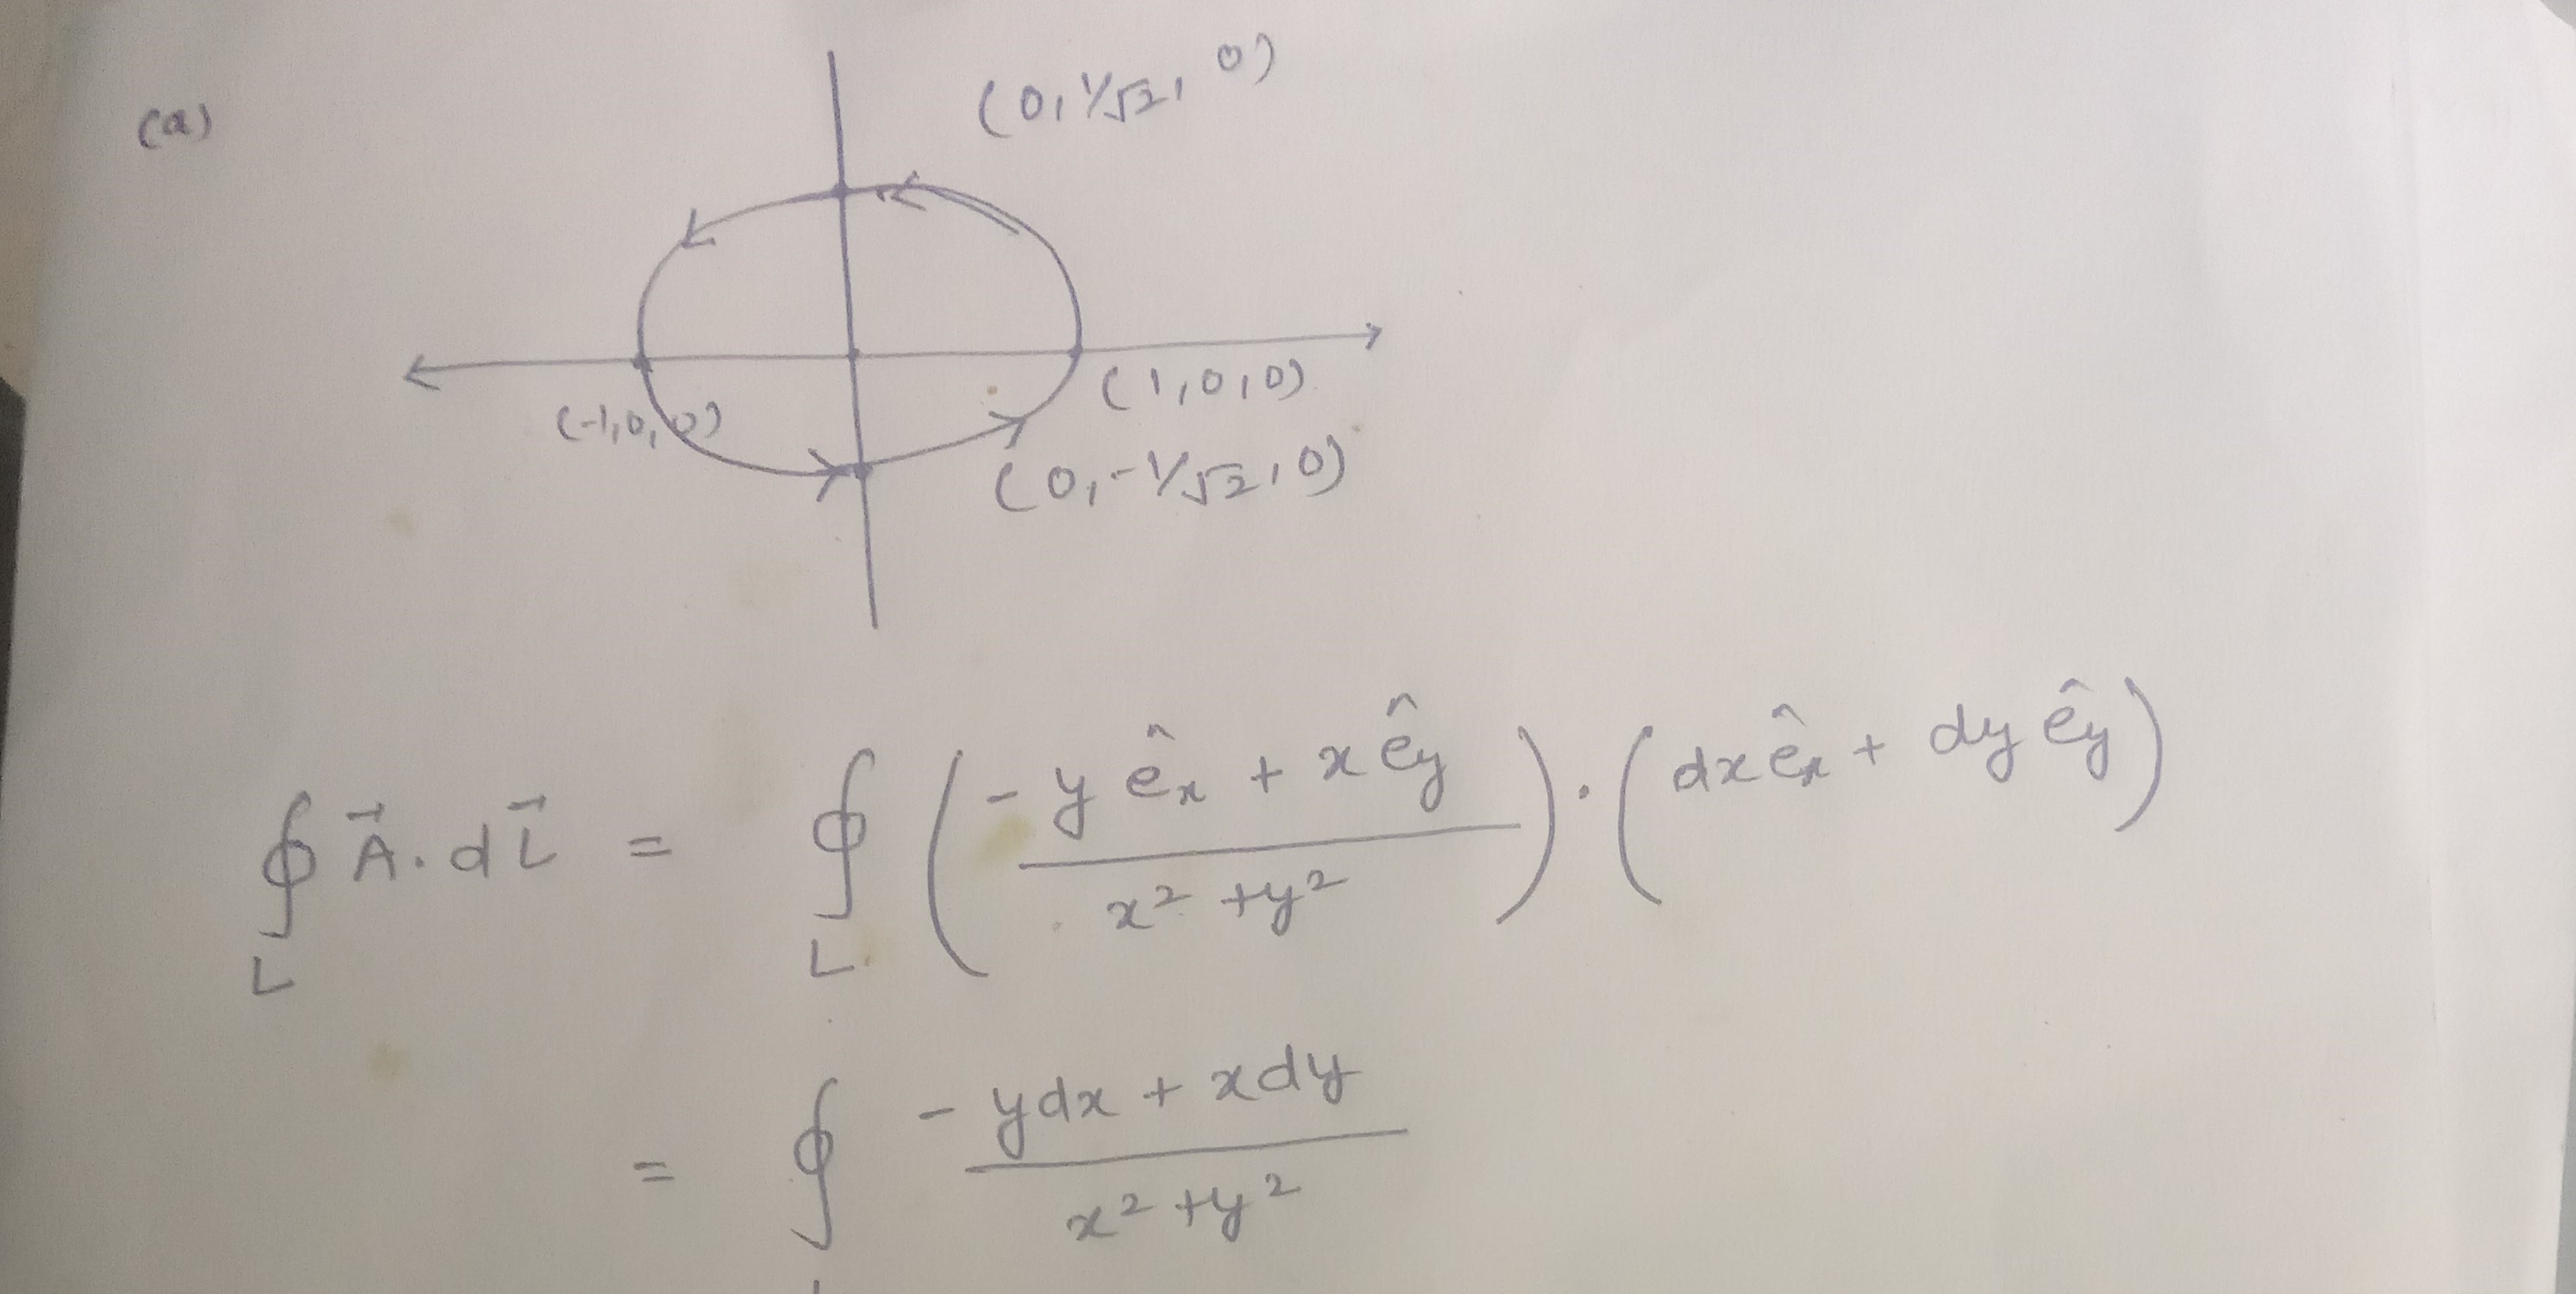 (a)
(0, 1/√2, 0)
(-1,0,0)
(1,0,0)
(0,-1/√2,0)
∮_L A⃗.dL⃗ = ∮_L ( (-y ê_x + x ê_y) / (x² + y²) ) . (dx ê_x + dy ê_y)
= ∮_L (-ydx + xdy) / (x² + y²)